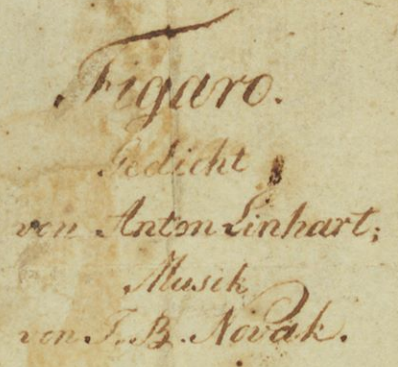 Figaro.
Gedicht
von Anton Linhart;
Musik
von J. B. Novak.